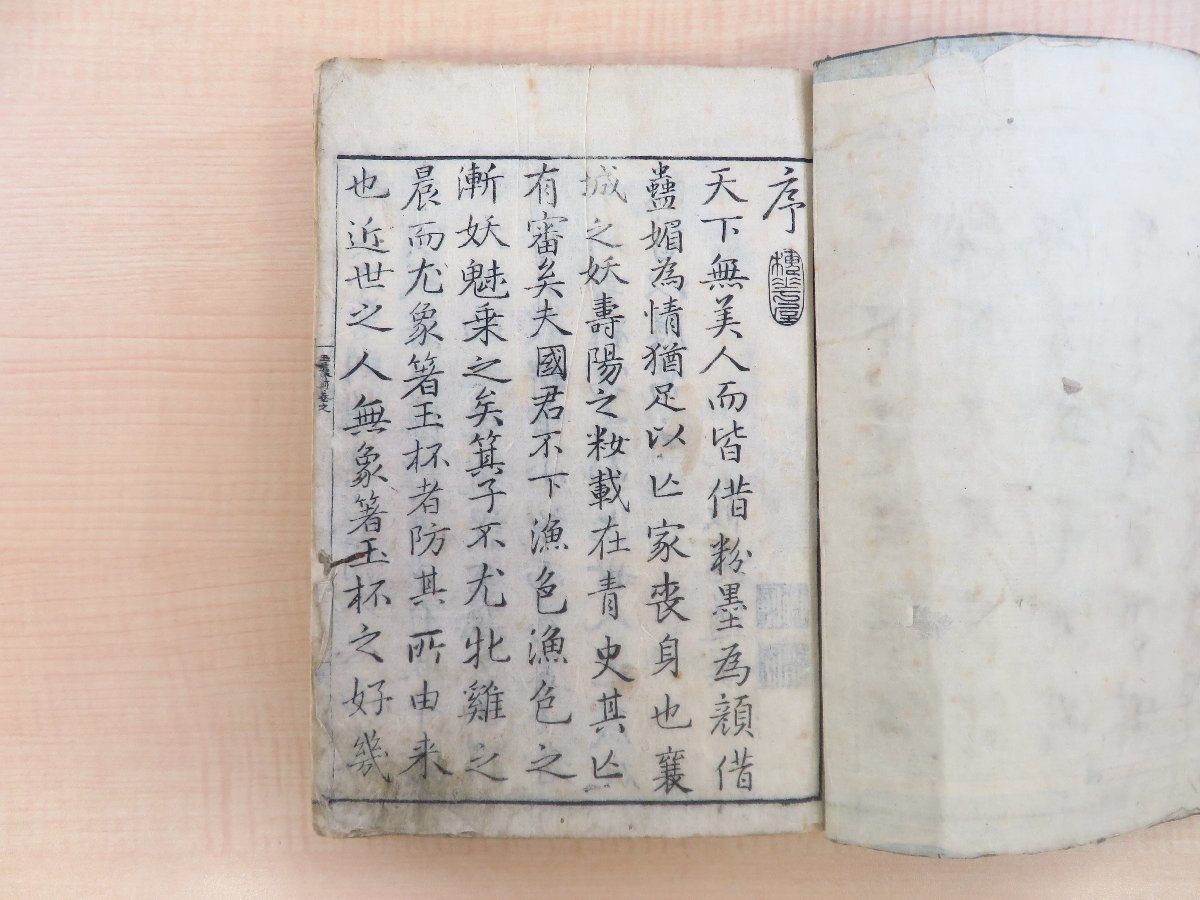 序
天下無美人而皆借粉墨為顔借
蠱媚為情猶足以亾家喪身也襄
城之妖壽陽之粧載在青史其亾
有審矣夫國君不下漁色漁色之
漸妖魅乗之矣箕子不尤牝雞之
晨而尤象箸玉杯者防其所由来
也近世之人無象箸玉杯之好幾